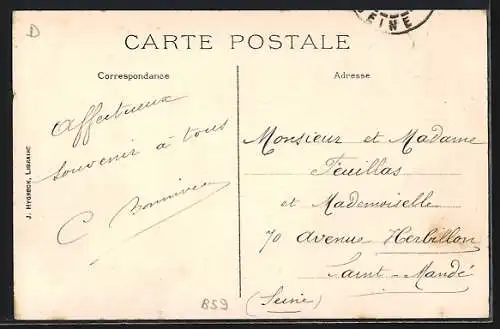 D
SEINE
CARTE POSTALE
Correspondance
Adresse
Affectueux
souvenir à tous
C
J. Hygreck, Libraire
Monsieur et Madame
Feuillas
et Mademoiselle
70 avenue Herbillon
Saint-Mandé
(Seine)
859